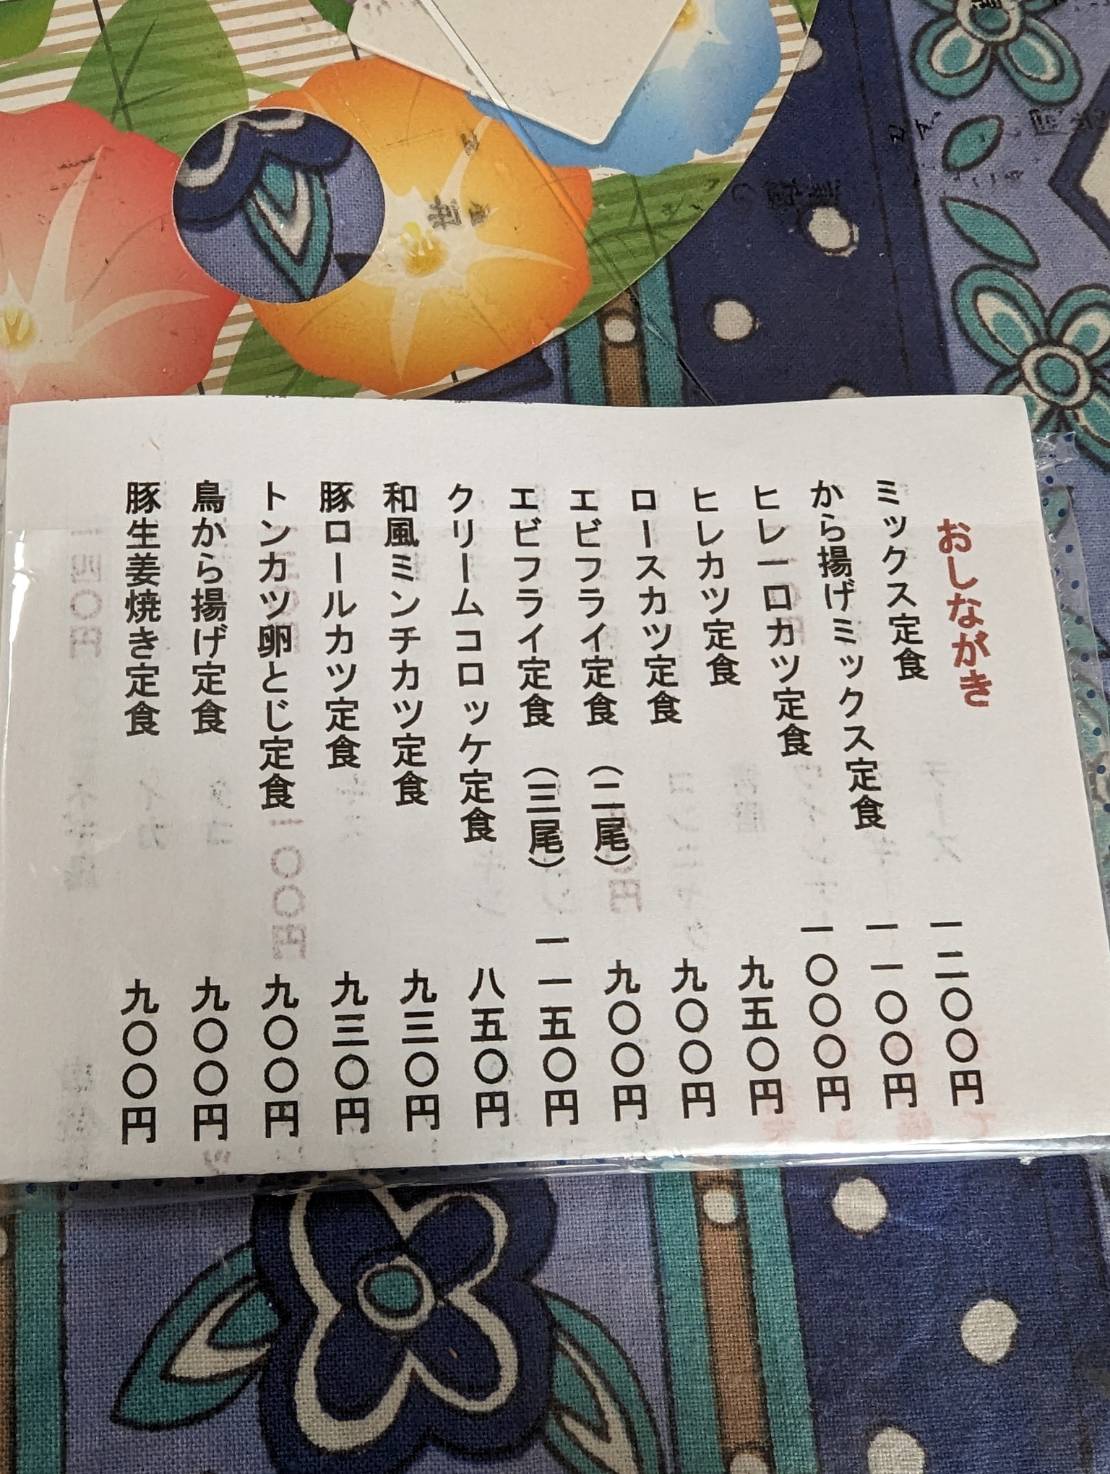 おしながき
ミックス定食 一二〇〇円
から揚げミックス定食 一一〇〇円
ヒレ一口カツ定食 一〇〇〇円
ヒレカツ定食 九五〇円
ロースカツ定食 九〇〇円
エビフライ定食（二尾） 九〇〇円
エビフライ定食（三尾） 一一五〇円
クリームコロッケ定食 八五〇円
和風ミンチカツ定食 九三〇円
豚ロールカツ定食 九三〇円
トンカツ卵とじ定食 九〇〇円
鳥から揚げ定食 九〇〇円
豚生姜焼き定食 九〇〇円